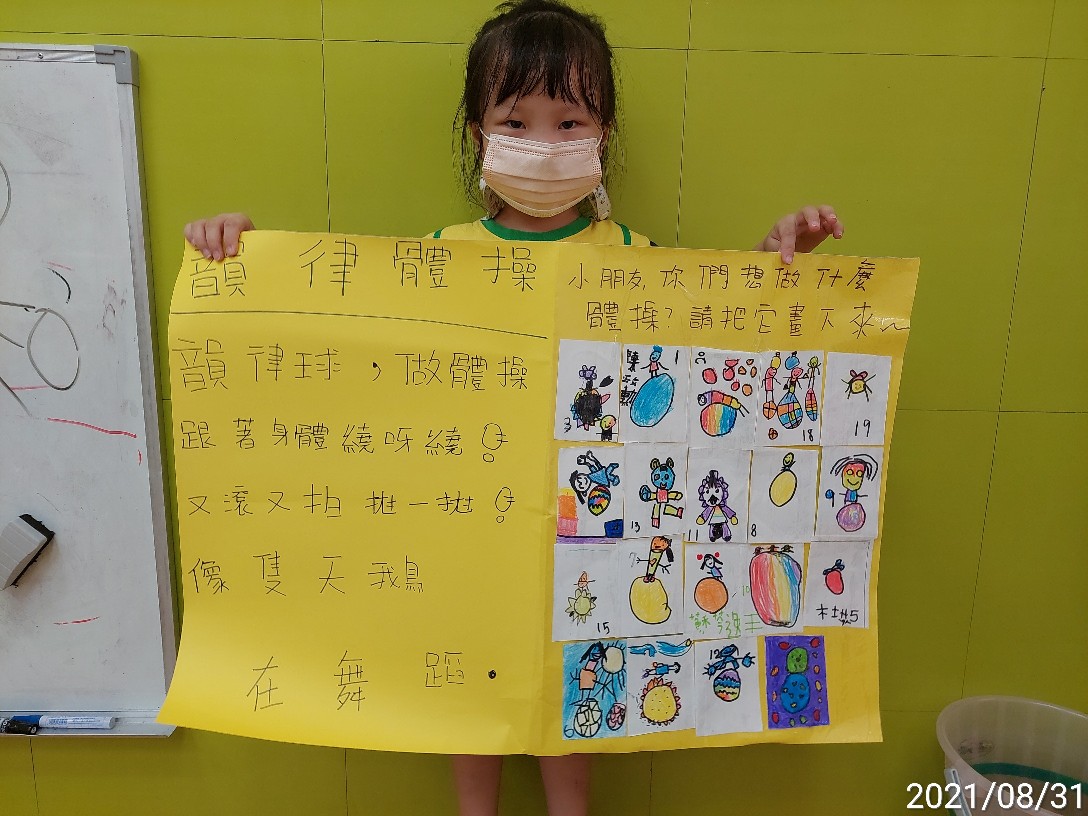 韻律體操
韻律球，做體操
跟著身體繞呀繞！
又滾又拍拋一拋！
像隻天鵝
在舞蹈。
小朋友你們想做什麼
體操?請把它畫下來~
3
1
18
19
13
11
8
15
7
10
5
6
12
2021/08/31